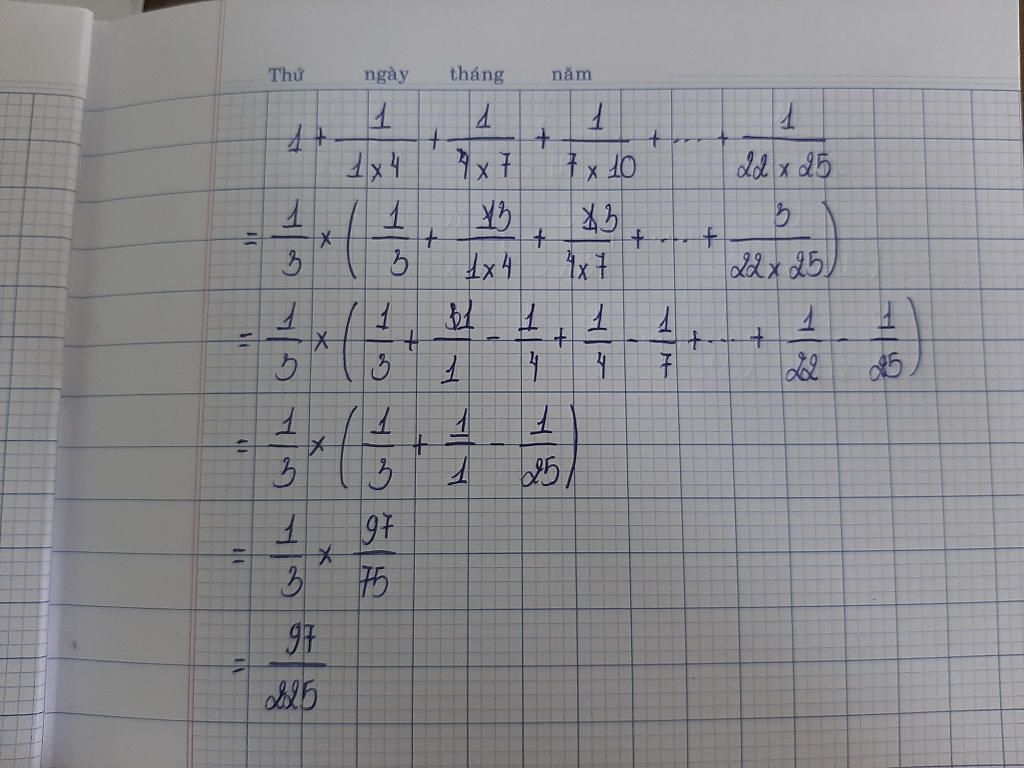 Thứ ngày tháng năm
1 + 1/(1 x 4) + 1/(4 x 7) + 1/(7 x 10) + .... + 1/(22 x 25)
= 1/3 x (1/3 + 3/(1x4) + 3/(4x7) + .... + 3/(22 x 25))
= 1/3 x (1/3 + 1/1 - 1/4 + 1/4 - 1/7 + ... + 1/22 - 1/25)
= 1/3 x (1/3 + 1/1 - 1/25)
= 1/3 x 97/75
= 97/225